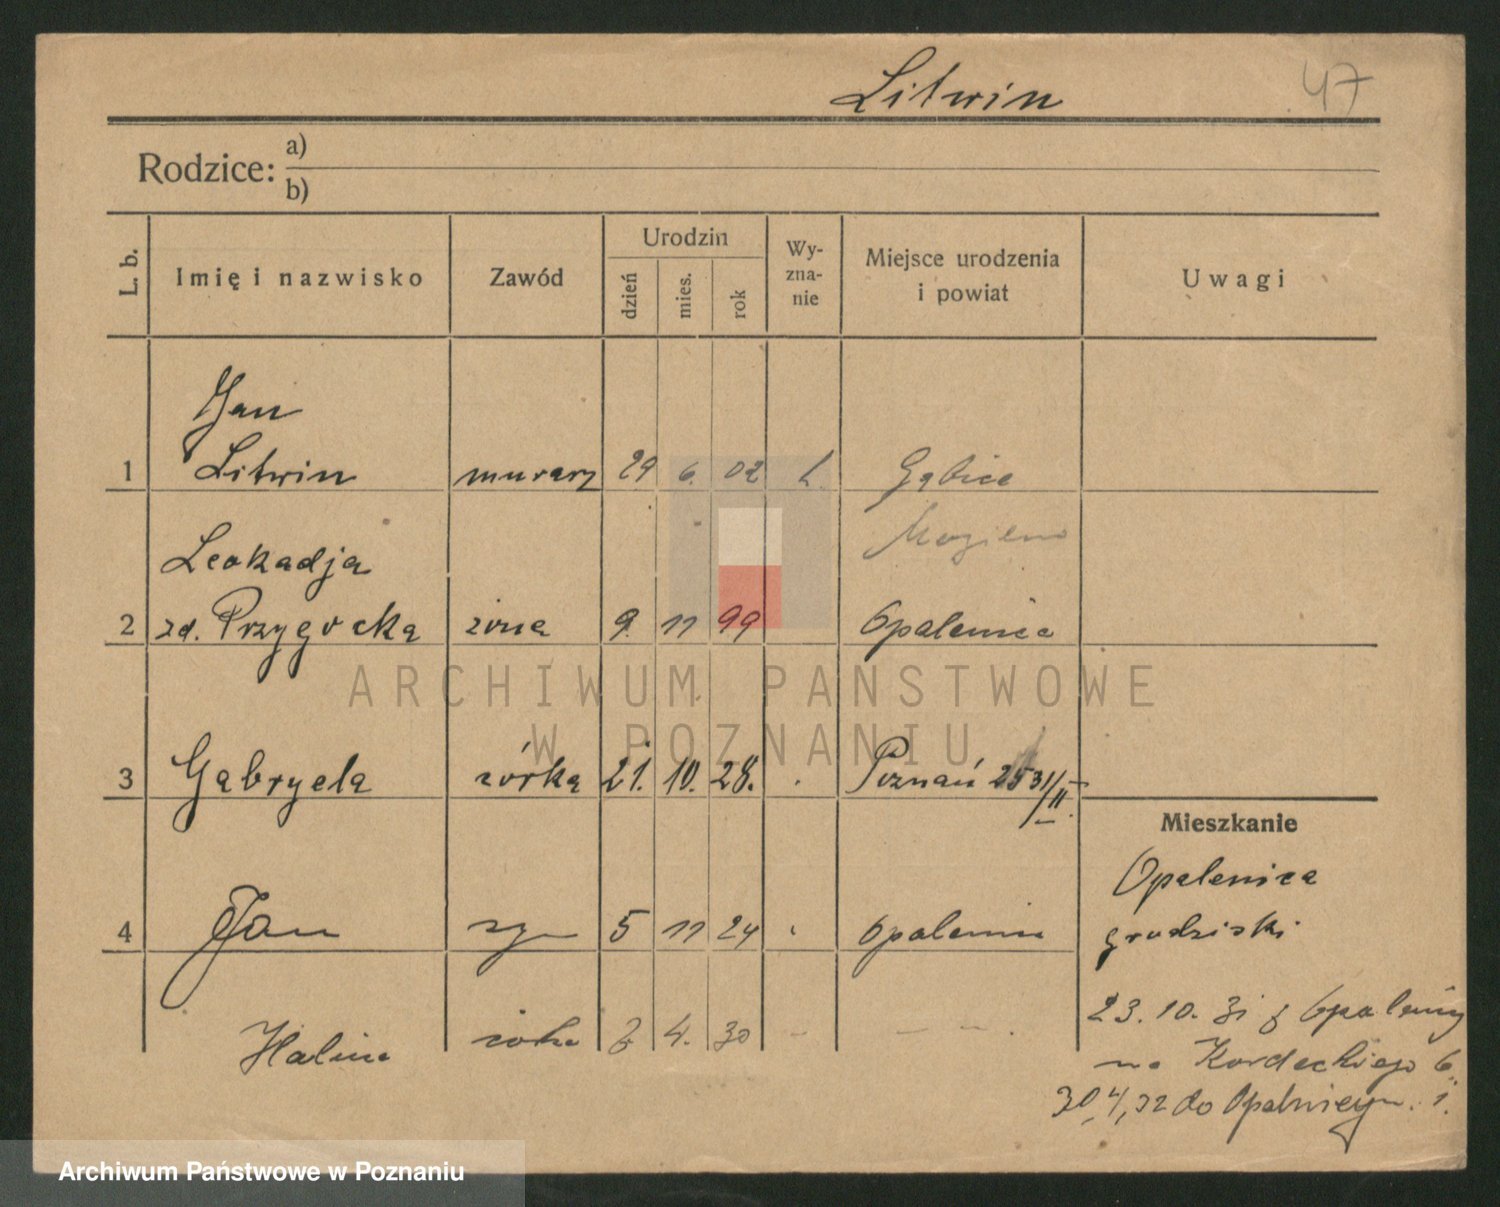 Litwin 47
Rodzice: a)
b)
L. b. Imię i nazwisko Zawód Urodzin dzień mies. rok Wyznanie Miejsce urodzenia i powiat Uwagi
Jan
1 Litwin murarz 29 6. 02 k. Gębice
Mogilno
Leokadja
2 zd. Przygocka żona 9. 11 99 Opalenica
ARCHIWUM PAŃSTWOWE
W POZNANIU
3 Gabryela córka 21. 10. 28. Poznań
Mieszkanie
Opalenica
4 Jan syn 5 11 24 Opalenica grodziski
23. 10. 31 z Opalenicy
Halina córka 4. 30
na Kordeckiego 6.
30,4,32 do
Archiwum Państwowe w Poznaniu